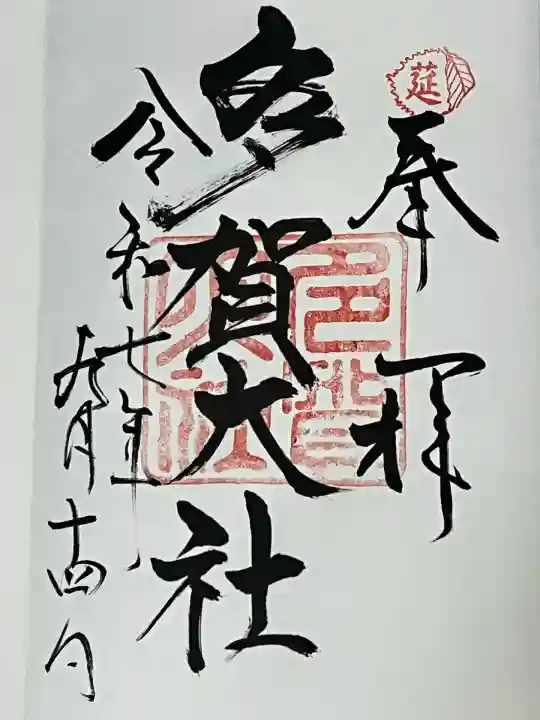 莚
奉拝
多賀大社
多賀大社
令和七年
九月十四日